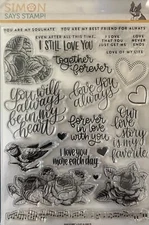 SIMON
SAYS STAMP!
YOU ARE MY SOULMATE
YOU ARE MY BEST FRIEND FOR ALWAYS
EVEN AFTER ALL THIS TIME...
I STILL LOVE YOU
I LOVE
THAT YOU
JUST GET ME
LOVE
NEVER
ENDS
together
forever
LOVE OF MY LIFE
you will
always
be in my
heart
love you
always
forever
in love
with you
our
love
story is my
favorite
I love you
more each day